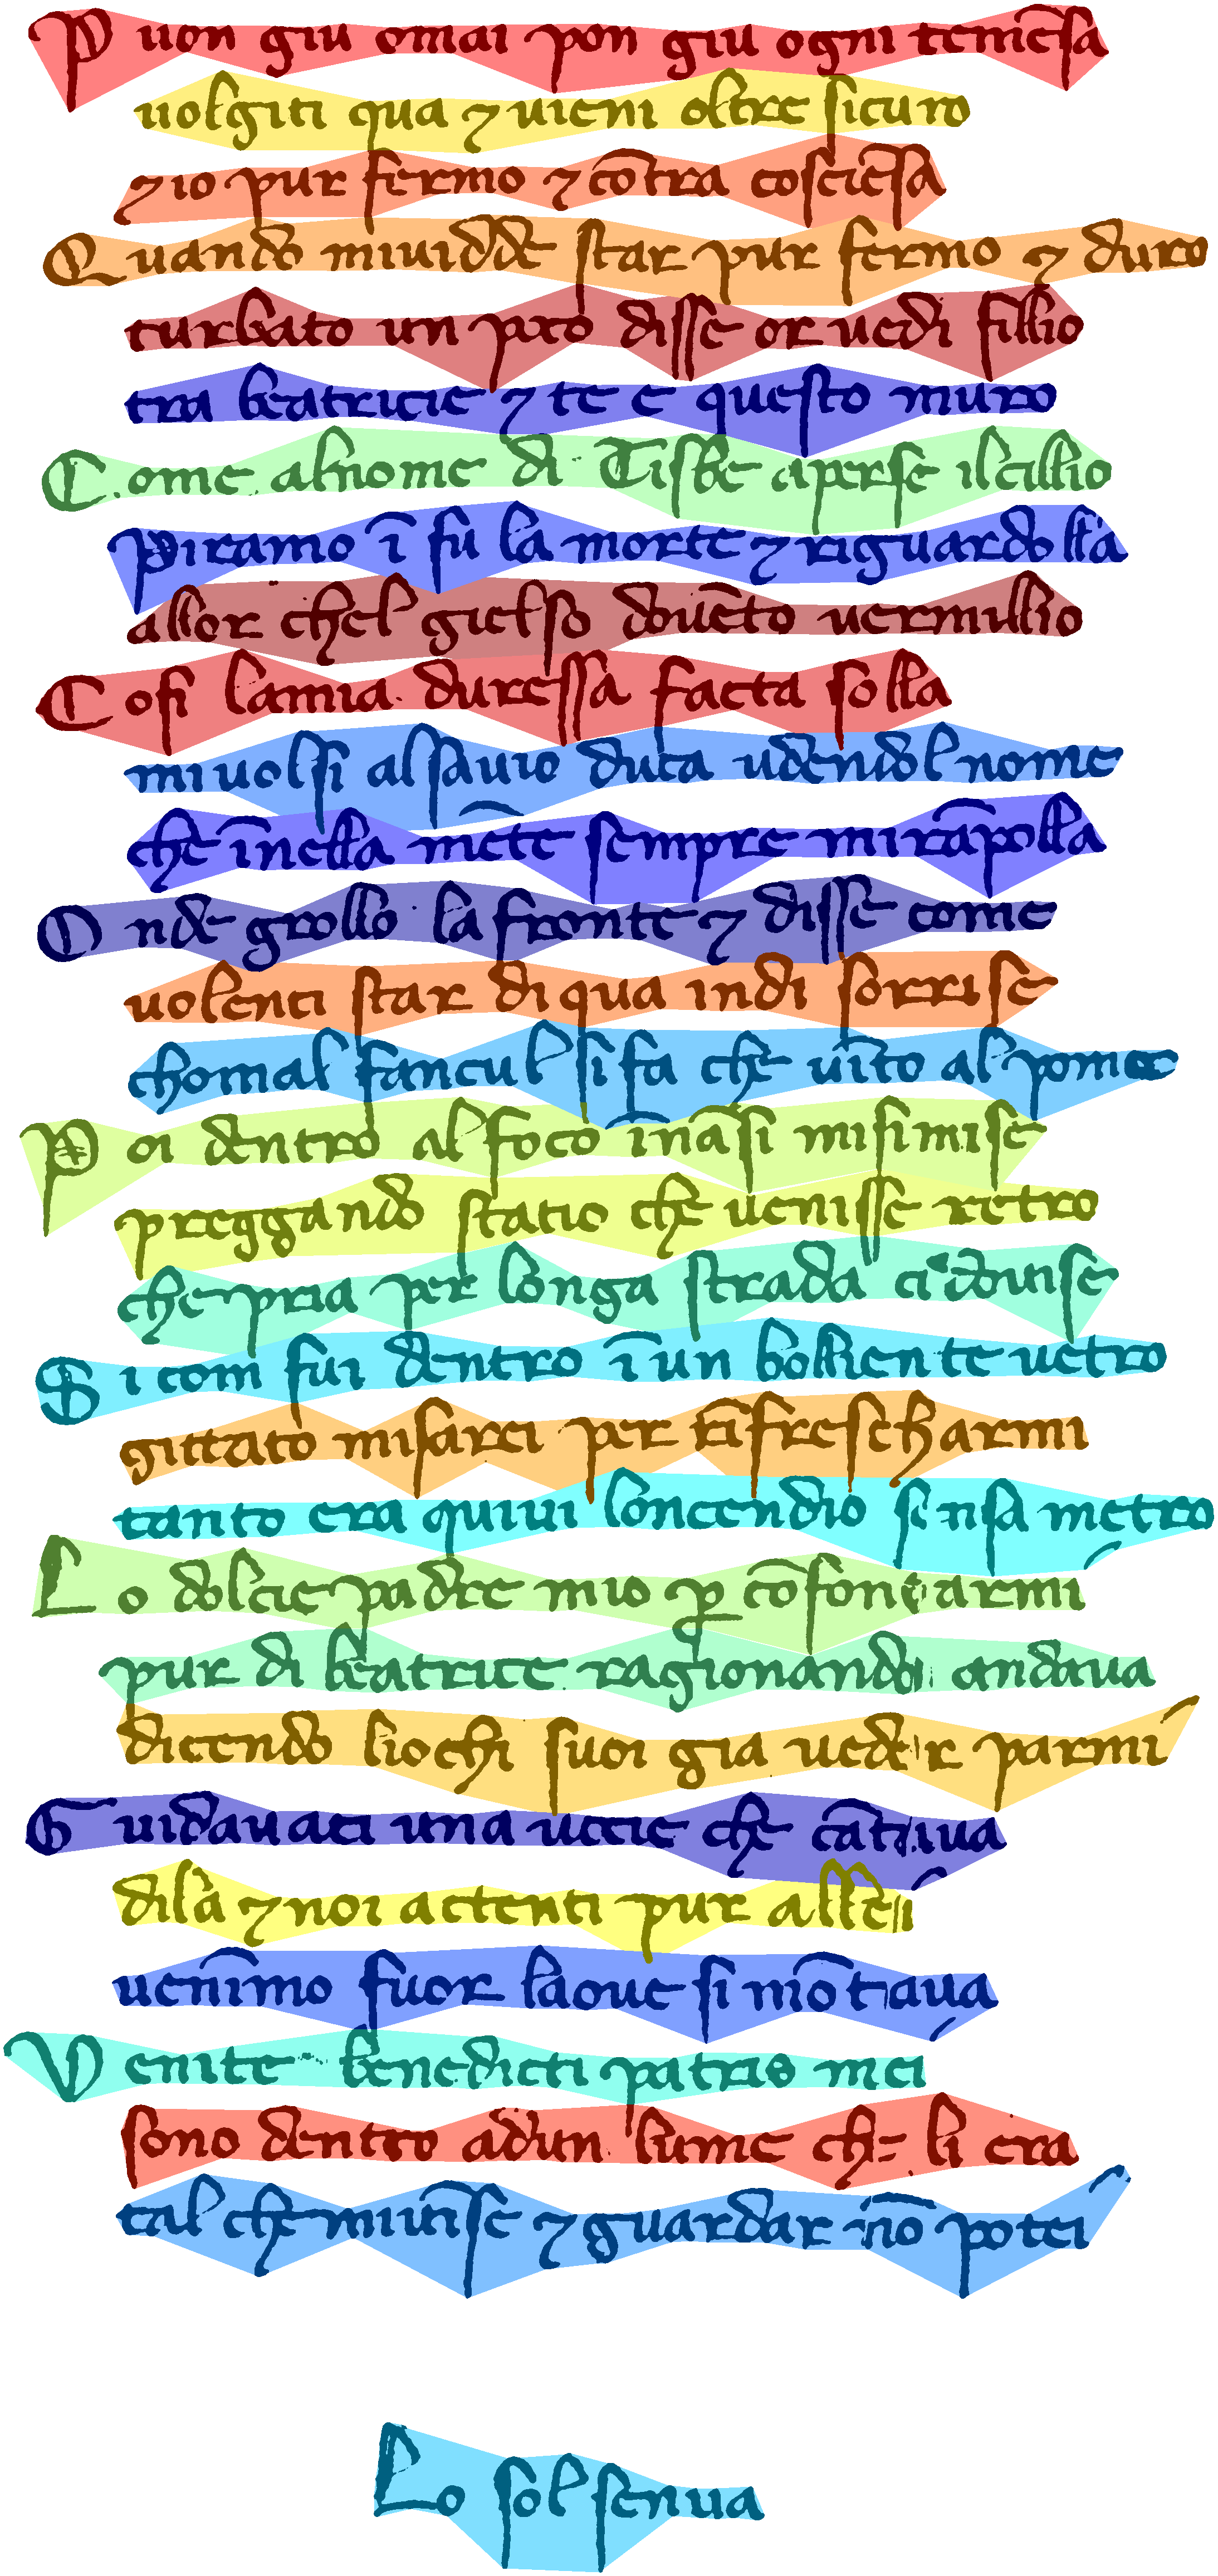 P uon giu omai pon giu ogni temẽsa
uolgiti qua ⁊ uieni oltre sicuro
⁊ io pur fermo ⁊ cõtra cosciẽsa
Quando miuidde star pur fermo ⁊ duro
turbato un pxo disse or uedi fillio
tra beatricie ⁊ te e questo muro
C ome alnome di Tisbe aperse ilcillio
Piramo ĩ su la morte ⁊ riguardolla
allor chel gielso douẽto uermillio
C osi lamia duressa facta solla
miuolsi alsauio duca udendol nome
che ĩnella mẽte sempre mirãpolla
O nde grollo la fronte ⁊ disse come
uolenti star di qua indi sorrise
chomal fancul sifa che uĩto al pome
P oi dentro alfoco inãsi misimise
preggando statio che uenisse retro
che pria per longa strada cidouise
S i com fui dentro ĩ un bolliente uetro
gittato misarei per rĩfrescharmi
tanto era quiui loncendio sensa metro
L o dolcie padre mio ꝑ cõfortarmi
pur di beatrice ragionando andaua
dicendo liochi suoi gia ueder parmi
G uidauaci una uocie che cãtaua
dila ⁊ noi actenti pur allei
uenĩmo fuor laoue si mõtaua
V enite benedicti patris mei
sono dentro adun lume che li era
tal che miuĩse ⁊ guardar nõ potei
Lo sol senua